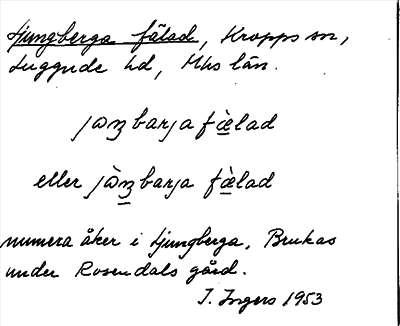 Ljungberga fälad, Kropps sn,
Luggude hd, Mhs län.
jɷŋbarja fæ̀lad
eller jɷ̀ŋbarja fæ̀lad
numera åker i Ljungberga, Brukas
under Rosendals gård.
I. Ingers 1953